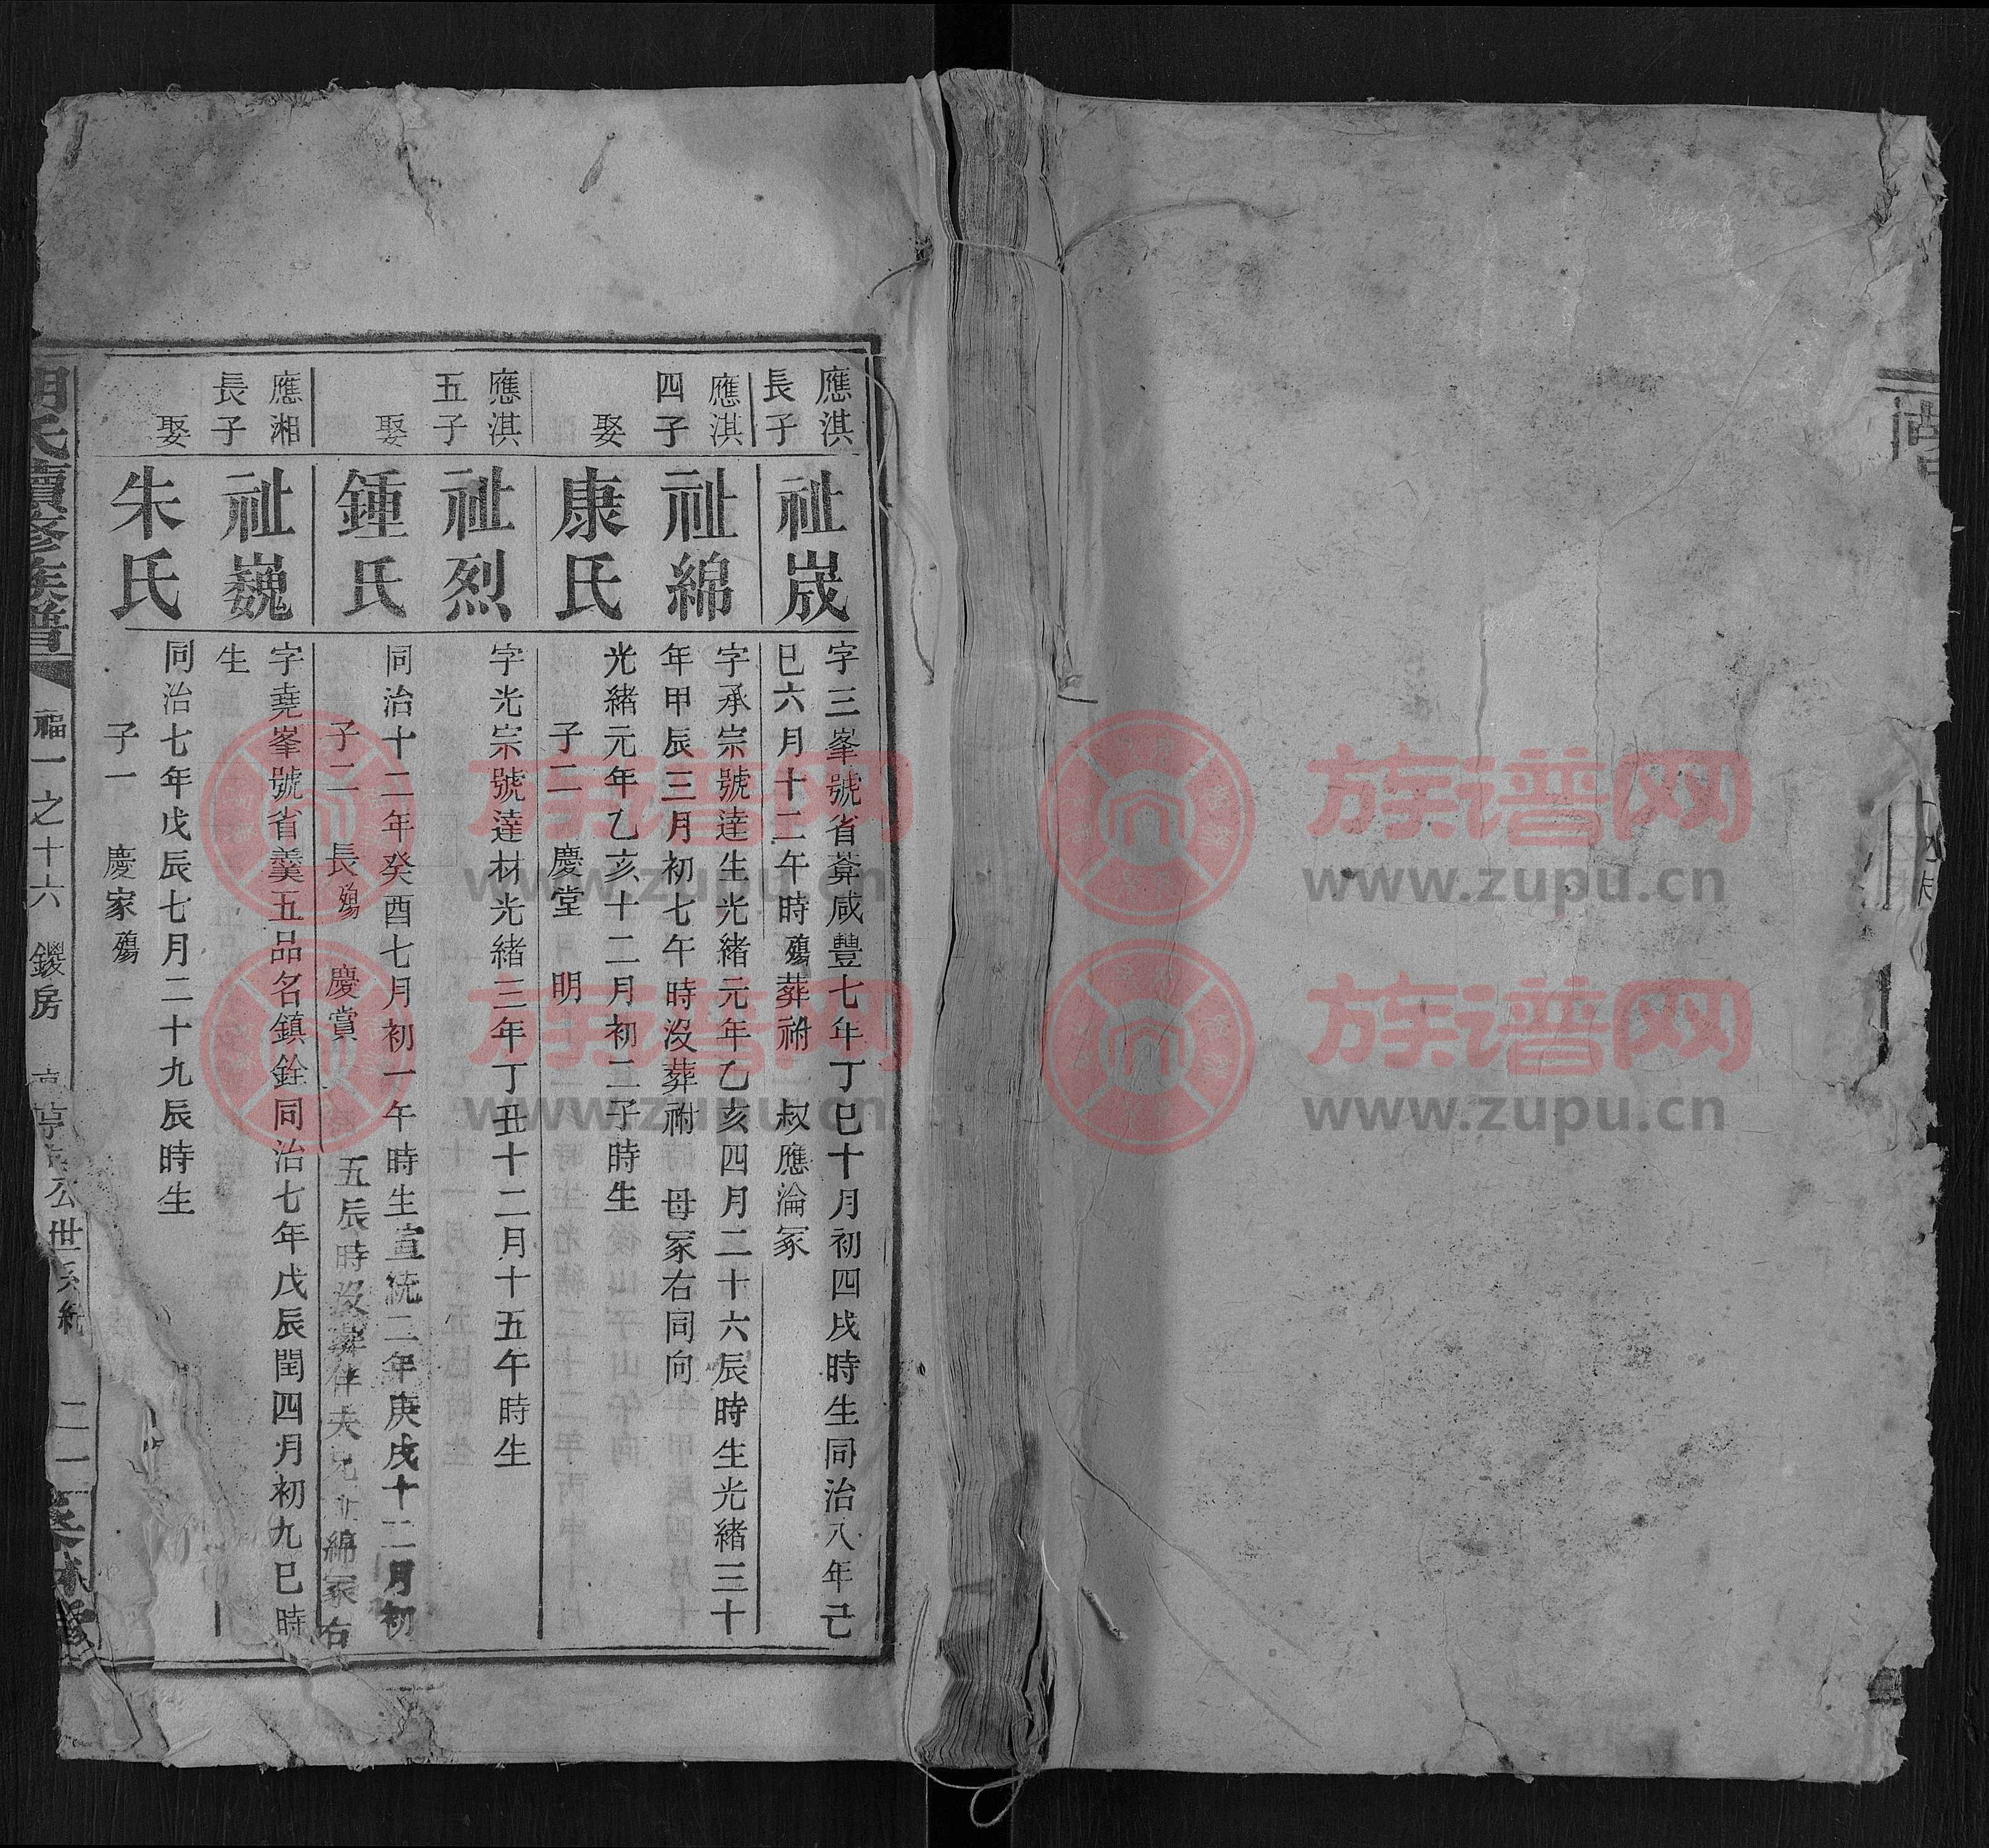 應淇
長子
祉宬
字三峯號省葊咸豐七年丁巳十月初四戌時生同治八年己
巳六月十二午時殤葬祔 叔應淪冢
應淇
四子
祉綿
字承宗號達生光緒元年乙亥四月二十六辰時生光緒三十
年甲辰三月初七午時沒葬祔 母冢右同向
娶
康氏
光緒元年乙亥十二月初二子時生
子二 慶堂 明
應淇
五子
祉烈
字光宗號達材光緒三年丁丑十二月十五午時生
娶
鍾氏
同治十二年癸酉七月初一午時生宣統二年庚戌十二月初
五辰時沒葬伴夫兄祉綿冢右
子二 長殤 慶賞
應湘
長子
祉巍
字堯峯號省羹五品名鎮銓同治七年戊辰閏四月初九巳時
生
娶
朱氏
同治七年戊辰七月二十九辰時生
子一 慶家殤
氏續修族譜
福一之十六 鍐房 公世系統 二一
族谱网
www.zupu.cn
族谱网
www.zupu.cn
族谱网
www.zupu.cn
族谱网
www.zupu.cn